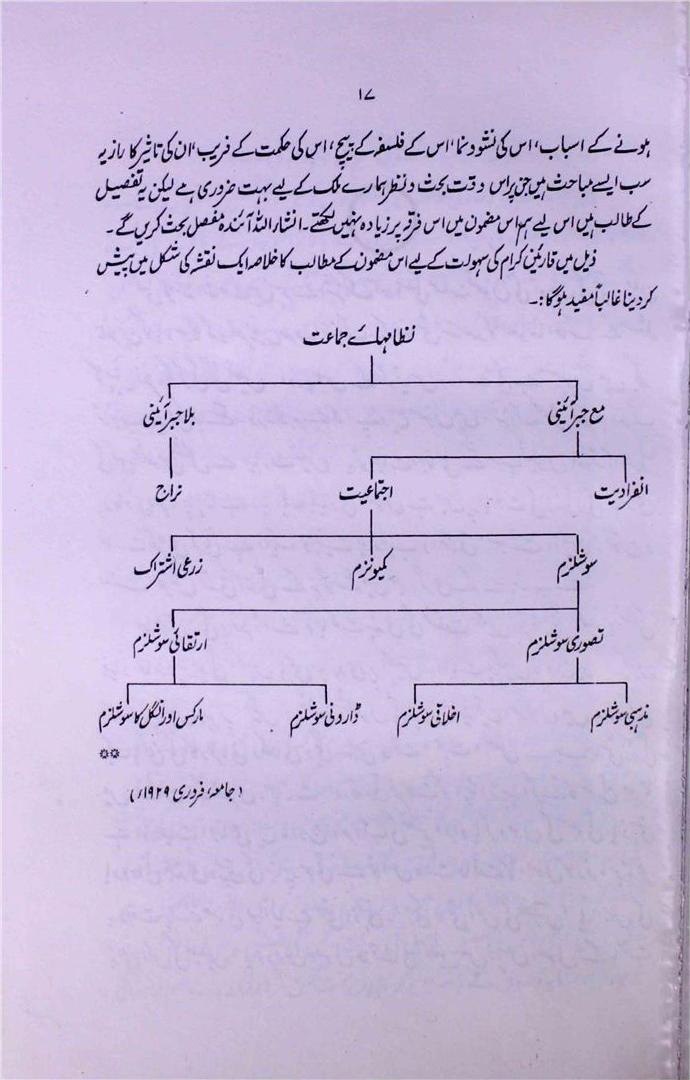 ۱۷
ہونے کے اسباب، اس کی نشوونما، اس کے فلسفہ کے پیچ، اس کی حکمت کے فریب، ان کی تاثیر کا راز یہ
سب ایسے مباحث ہیں جن پر اس وقت بحث و نظر ہمارے ملک کے لیے بہت ضروری ہے لیکن یہ تفصیل
کے طالب ہیں اس لیے ہم اس مضمون میں اس فرقہ پر زیادہ نہیں لکھتے۔ انشاء اللہ آئندہ مفصل بحث کریں گے۔
ذیل میں قارئین کرام کی سہولت کے لیے اس مضمون کے مطالب کا خلاصہ ایک نقشہ کی شکل میں پیش
کردینا غالباً مفید ہوگا:۔
نظامہائے جماعت
مع جبر آئینی
بلا جبر آئینی
انفرادیت
اجتماعیت
نراج
سوشلزم
کمیونزم
زرعی اشتراک
تصوری سوشلزم
ارتقائی سوشلزم
مذہبی سوشلزم
اخلاقی سوشلزم
ڈارونی سوشلزم
مارکس اور انگل کا سوشلزم
**
(جامعہ، فروری ۱۹۲۹ء)